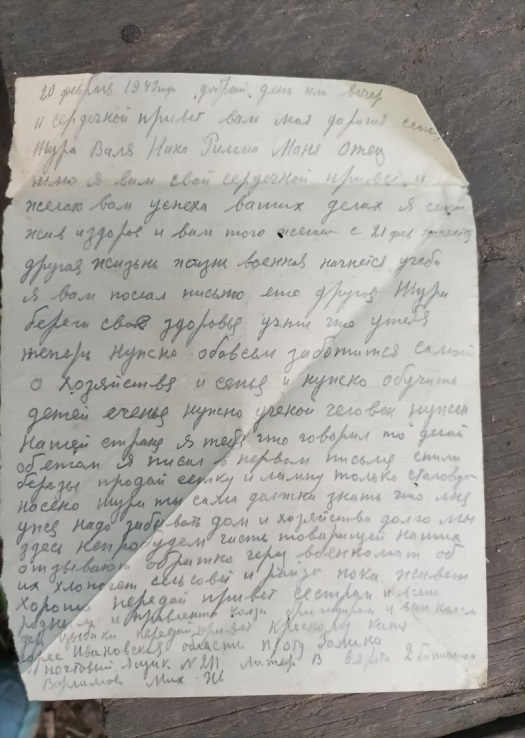 20 февраля 1942 года добрый день или вечер
и сердечной привет вам моя дорогая
Шура Валя Нина Римма Маня Отец
шлю я вам свой сердечной привет и
желаю вам успеха ваших делах я
жив издоров и вам того желаю с 21 фев
другая жизнь жизнь военная начнется учеба
я вам послал письмо ето другая Шура
береги своё здоровье учти что утебя
теперь нужно обовсем заботится самой
о хозяйстве и и нужно обучить
детей еченье нужно ученой человек нужен
нашей стране я тебе что говорил то делай
об етам я писал в первом письме спили
березы продай сетку и лампу только
Шура ты сама должна знать что мне
уже надо забывать дом и хозяйства долго мы
здесь непробудем часть товарищей наших
отзывают обратно через военкомат об
их хлопочет сельсовет и пока живем
хорошо передай привет сестрам и всем
родным и правлению
передай привет Кате
адрес Ивановская область п/от
почтовый ящик N 211 литер В рота 2 батальон
Варламов Мих